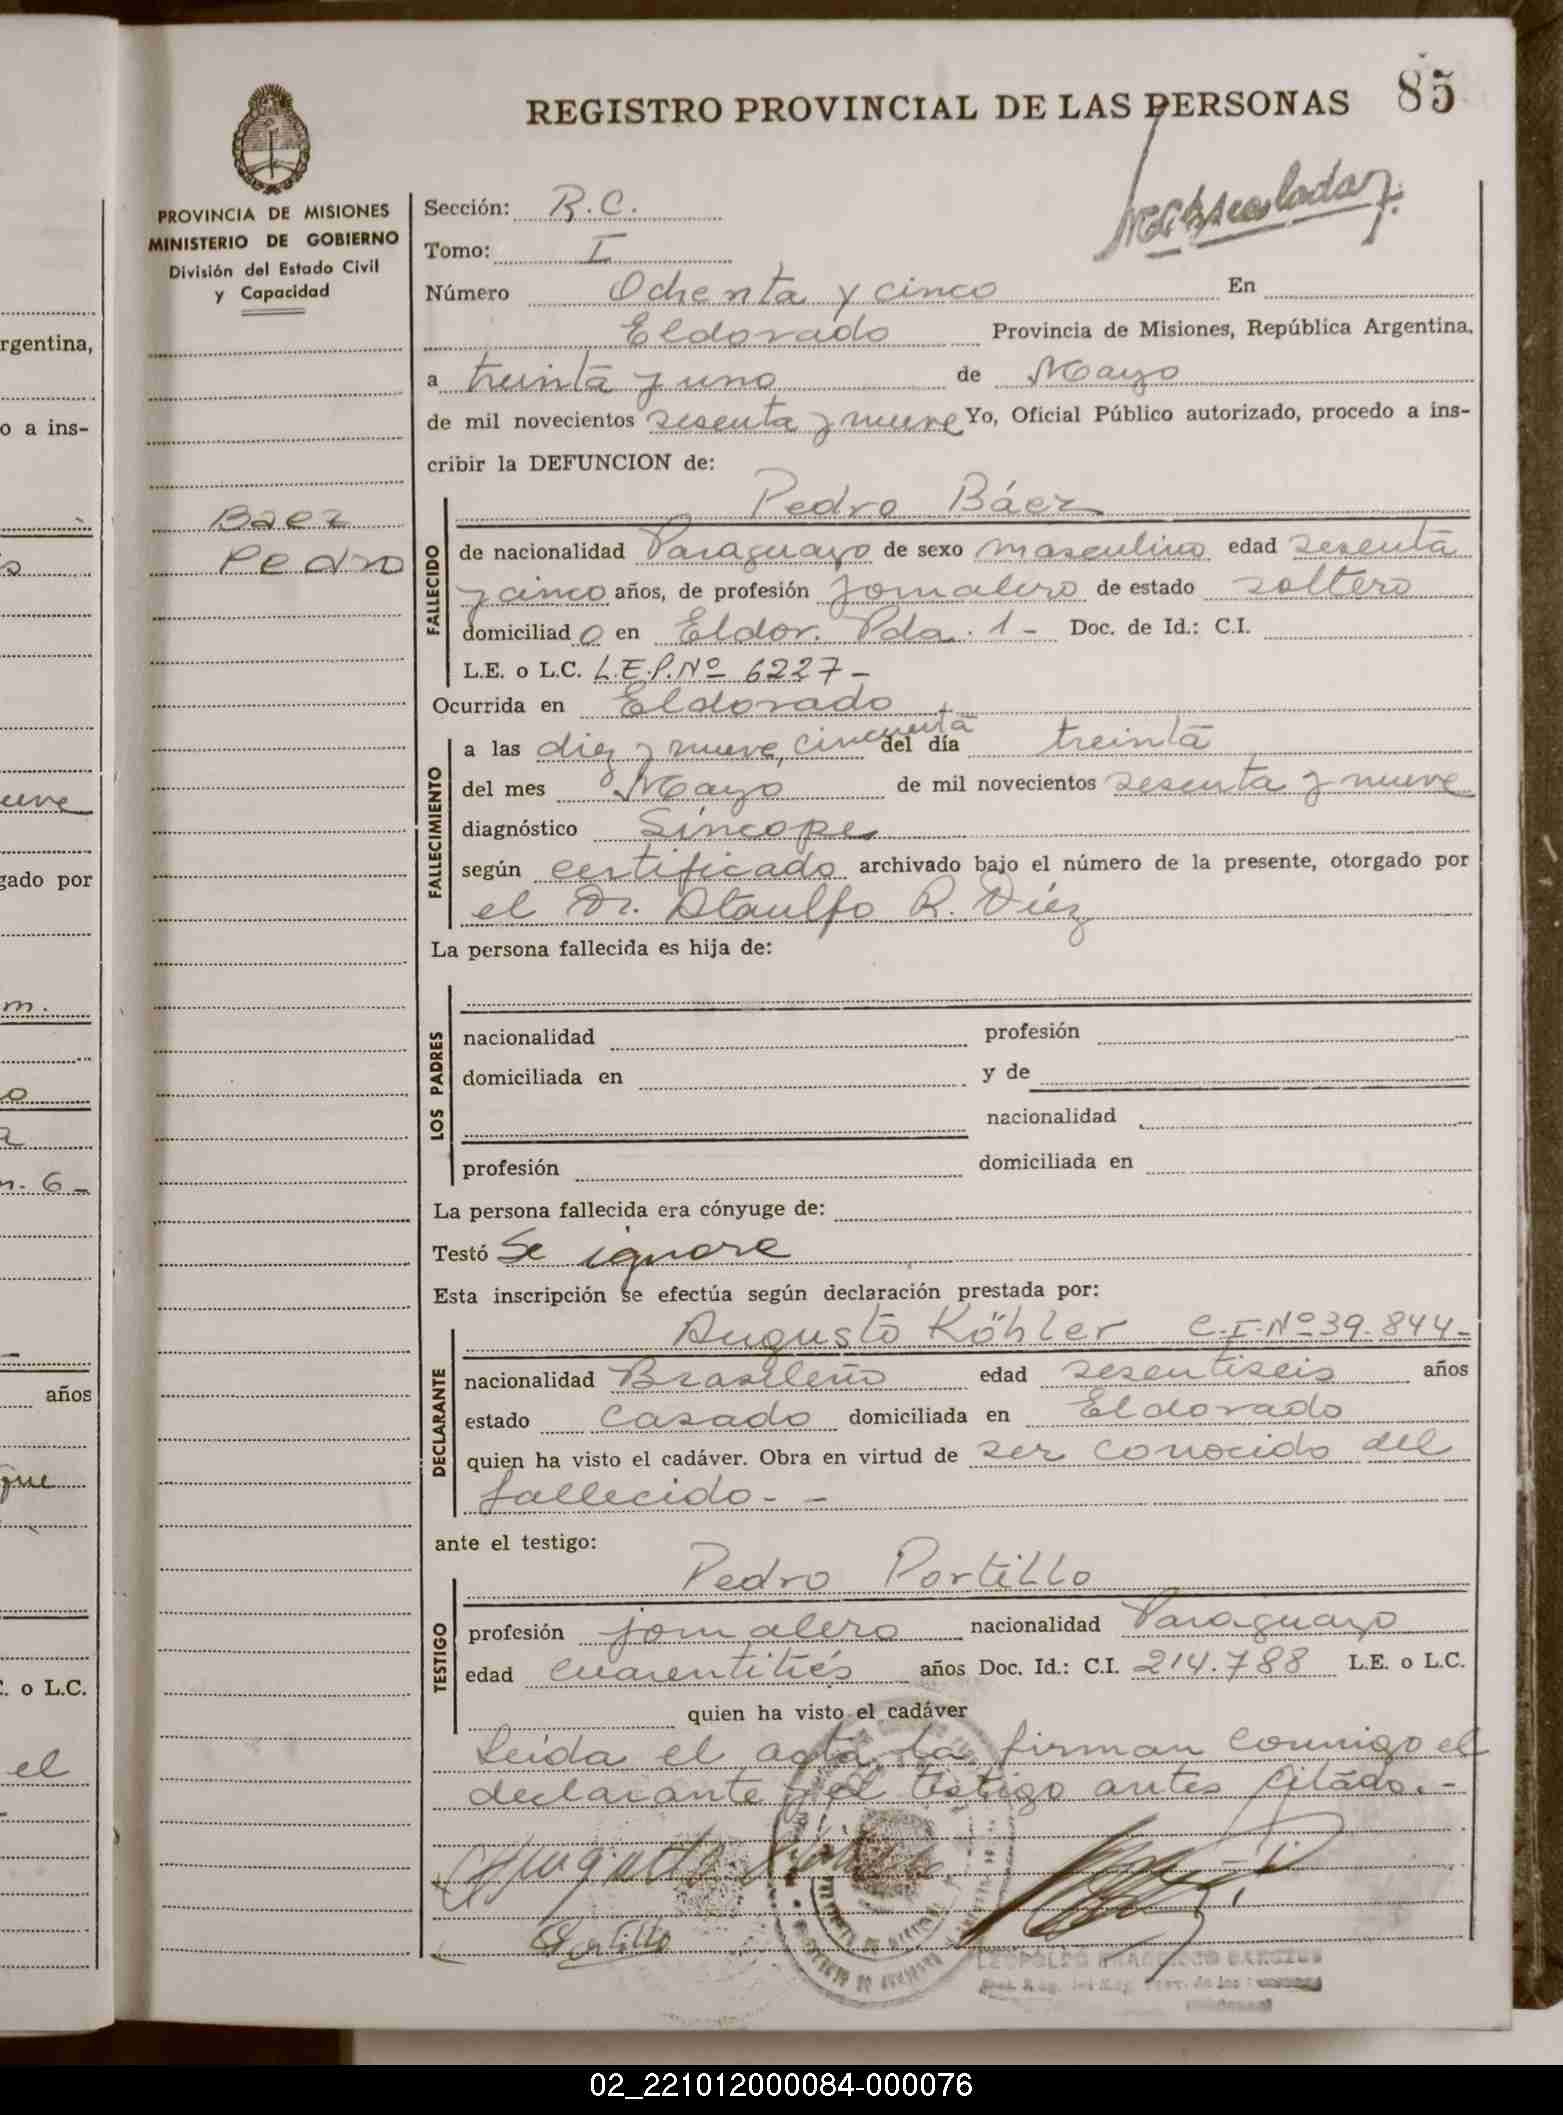 REGISTRO PROVINCIAL DE LAS PERSONAS 85
PROVINCIA DE MISIONES
MINISTERIO DE GOBIERNO
División del Estado Civil
y Capacidad
Baez
Pedro
Sección: R.C.
Tomo: I
Número Ochenta y cinco En
Eldorado Provincia de Misiones, República Argentina,
a treinta y uno de Mayo
de mil novecientos sesenta y nueve Yo, Oficial Público autorizado, procedo a ins-
cribir la DEFUNCION de:
Pedro Báez
FALLECIDO
de nacionalidad Paraguayo de sexo masculino edad sesenta
y cinco años, de profesión jornalero de estado soltero
domiciliado en Eldor. Pda. 1 - Doc. de Id.: C.I.
L.E. o L.C. L.E.P. Nº 6227 -
Ocurrida en Eldorado
FALLECIMIENTO
a las diez y nueve, cincuenta del día treinta
del mes Mayo de mil novecientos sesenta y nueve
diagnóstico Síncope
según certificado archivado bajo el número de la presente, otorgado por
el Dr. Ataulfo R. Díez
La persona fallecida es hija de:
LOS PADRES
nacionalidad profesión
domiciliada en y de
nacionalidad
profesión domiciliada en
La persona fallecida era cónyuge de:
Testó Se ignora
Esta inscripción se efectúa según declaración prestada por:
DECLARANTE
Augusto Köhler C.I. Nº 39.844-
nacionalidad Brasileño edad sesentiseis años
estado casado domiciliada en Eldorado
quien ha visto el cadáver. Obra en virtud de ser conocido del
fallecido. - -
ante el testigo:
Pedro Portillo
TESTIGO
profesión jornalero nacionalidad Paraguayo
edad cuarentitrés años Doc. Id.: C.I. 214.788 L.E. o L.C.
quien ha visto el cadáver
Leída el acta, la firman conmigo el
declarante y el testigo antes citado. -
Portillo
rgentina,
o a ins-
gado por
años
n. 6 -
. o L.C.
el
02_221012000084-000076